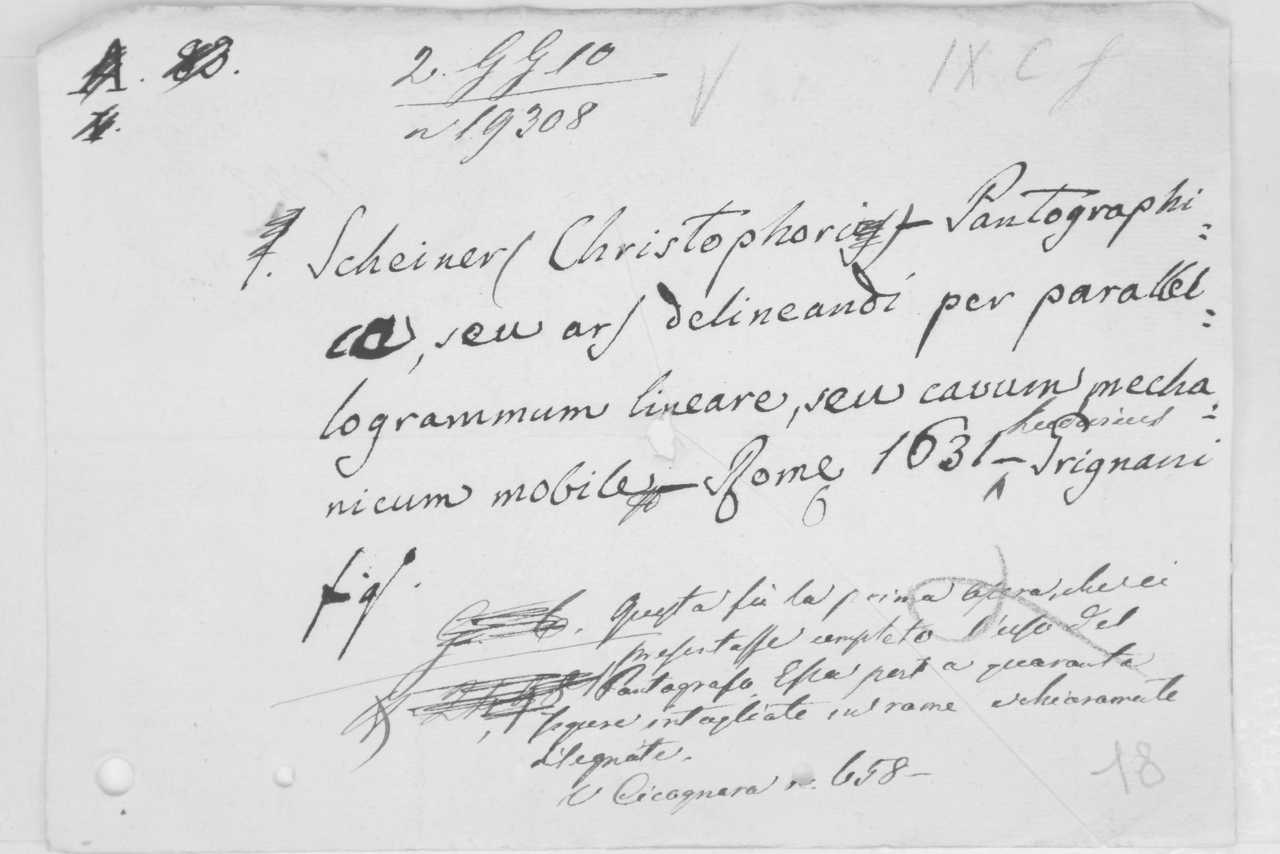 A. 83.
2. G G 10
n 19308
V
IX C f
4.
Scheiners Christophori – Pantographi:
ca, seu ars delineandi per parallel:
logrammum lineare, seu cavum mecha:
Ludovicus
nicum mobile – Rome 1631 – Grignani
fig.
Questa fù la prima opera, che ci
presentasse completo l'uso del
Pantografo. Essa porta quaranta
figure intagliate in rame e chiaramente
disegnate.
V Cicognara n. 658 –
18